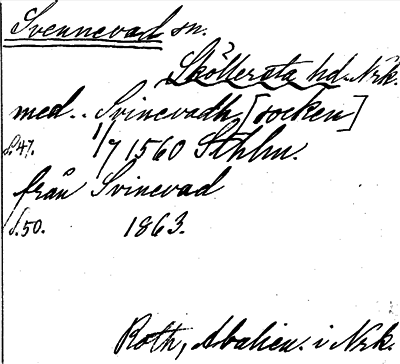 Svennevad sn.
Sköllersta hd. Nrk.
med. Svinevadh [socken]
s.47. 1/7 1560 Sthlm.
från Svinevad
s.50. 1863.
Roth, Abalien. i Nrk.